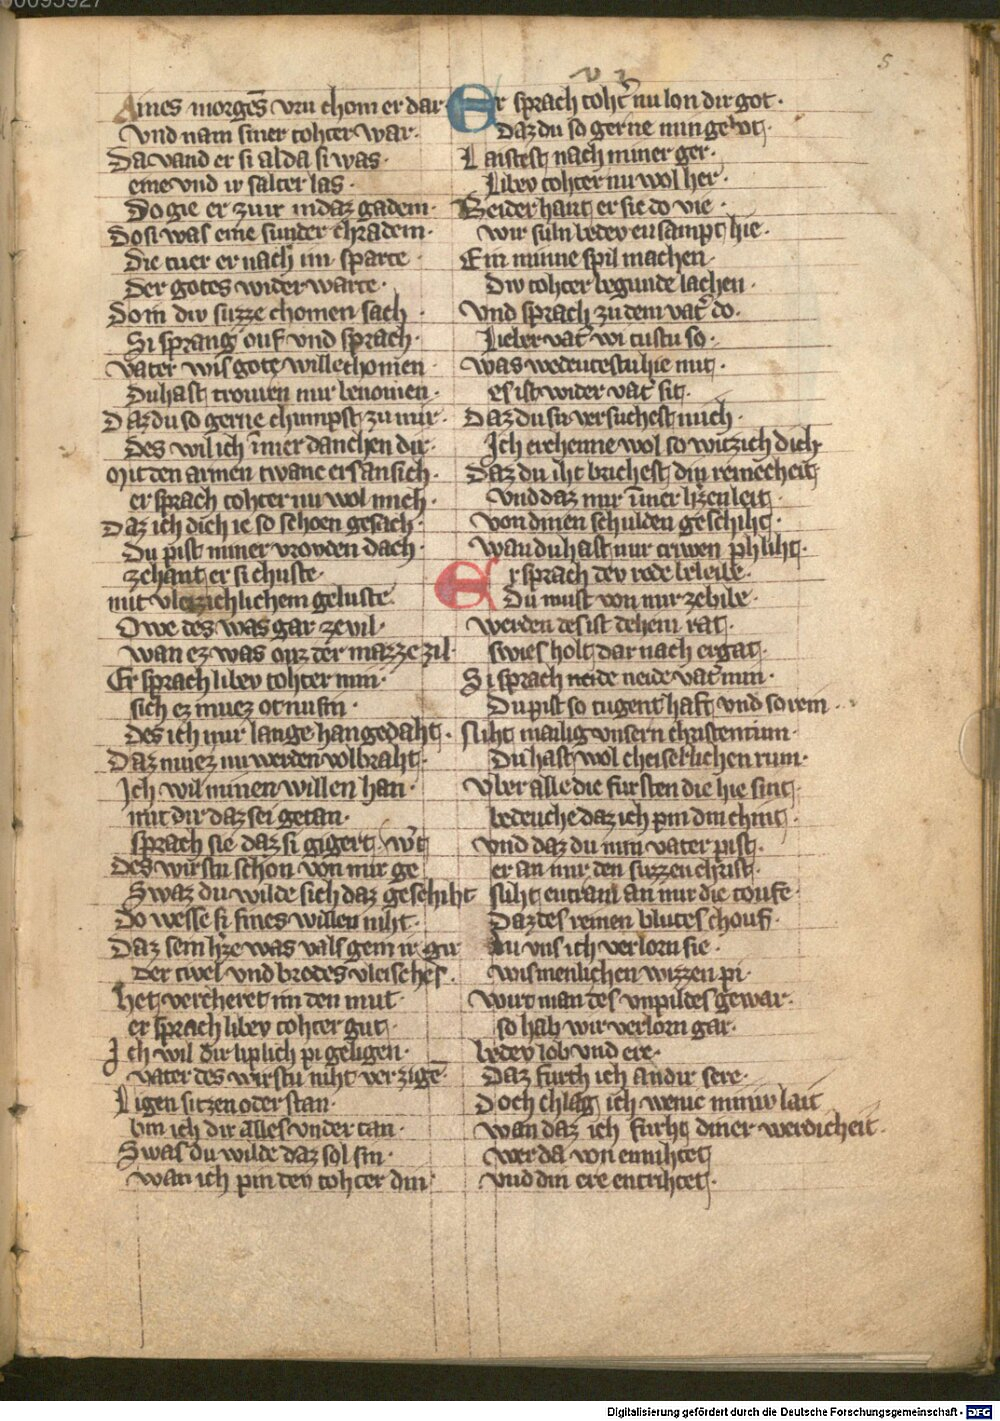 00095927
5
Aines morgēs vru chom er dar·
vnd nam siner tohter war·
Da vand er si alda si was·
eine vnd ir salter las·
Do gie er zuir in daz gadem·
do si was eine sunder chradem·
die tuer er nach im sparte
der gotes wider warte·
Do in div suzze chomen sach
Si sprang ouf vnd sprach·
vater wis gote willechomen
Du hast trouren mir benomen·
Daz du so gerne chumpst zu mir·
des wil ich īmer danchen dir·
Mit den armen twanc er s an sich·
er sprach tohter nu wol mich·
Daz ich dich ie so schoen gesach·
Du pist miner vroyden dach·
zehant er si chuste·
mit vleizichlichem geluste·
Owe des was gar zevil·
wan ez was ouz der mazze zil·
Er sprach libev tohter min·
sich ez muez ot nu sin·
des ich mir lange han gedaht·
Daz muez nu werden volbraht·
Ich wil minen willen han·
mit dir daz sei getan·
sprach sie daz si gigert w't
des wirstu schon von mir ge
Swaz du wilde sich daz geschiht
do wesse si sines willen niht·
Daz sein h'ze was vals gem
der tivel vnd brodes vleisches·
het vercheret im den mut·
er sprach libev tohter gut·
Ich wil dir liplich pi geligen·
vater des wirstu niht verzigē·
Ligen sitzen oder stan·
bin ich dir alles vnder tan·
Swas du wilde daz sol sin·
wan ich pin dev tohter din·
Er sprach toht' nu lon dir got·
Daz du so gerne min gebot·
Laistest nach miner ger·
Libev tohter nu wol her·
Beider hant er sie do vie·
wir suln bedev ensampt hie·
Ein minne spil machen·
Div tohter begunde lachen·
Vnd sprach zu dem vat' do·
Lieber vat' wi tustu so·
was wedeutestu hie mit·
es ist wider vat' sit·
Daz du sus versuchest mich·
Ich erchenne wol so witzich dich
Daz du iht brichest din reinecheit
vnd daz mir īmer h'zen leit·
von dinen schulden geschiht·
wan du hast mir triwen phliht·
Er sprach dev rede beleibe·
Du must von mir ze bibe·
werden des ist dehein rat·
swies holt dar nach ergat·
Si sprach neide neide vat' min·
Du pist so tugenthaft vnd so rein·
niht mailig vnsern christentum·
Du hast wol cheiserlichen rum·
Vber alle die fursten die hie sint·
bedenche daz ich pin din chint·
vnd daz du min vater pist·
er an mir den suzzen christ·
niht entrain an mir die toufe·
Daz des reinen blutes chouf·
an vns ich verlorn sie·
wis menlichen wizzen pi·
wirt man des vnpildes gewar·
so hab wir verlorn gar·
bedev lob vnd ere·
Daz furth ich an dir sere·
Doch chlag ich wenic miniv lait
wan daz ich furht diner werdicheit·
wer da von ennihtet
vnd din ere entrihtet·
Digitalisierung gefördert durch die Deutsche Forschungsgemeinschaft - DFG